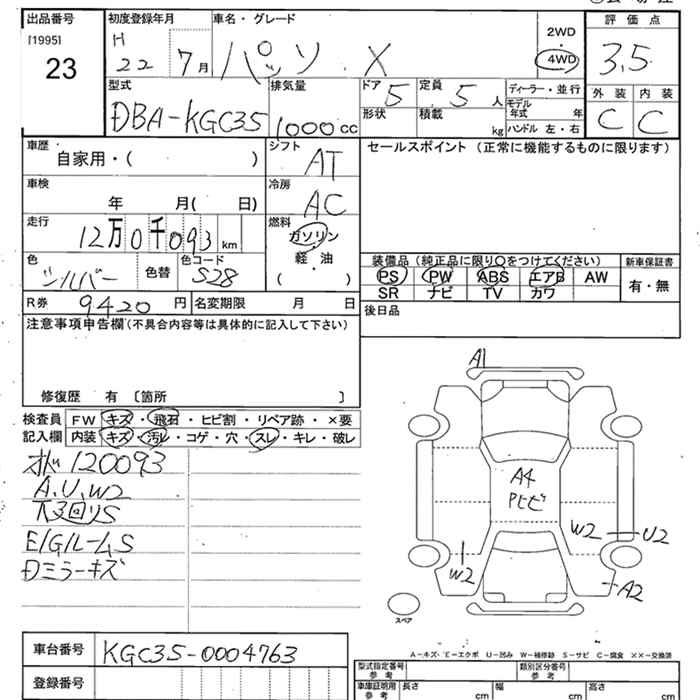 出品番号
[1995]
23
初度登録年月
H
22 7月
車名・グレード
パッソ X
2WD
・
4WD
評価点
3.5
外装 内装
C C
型式
DBA-KGC35
排気量
1000cc
ドア 5
形状
定員 5人
積載 kg
ディーラー・並行
モデル年式 年
ハンドル 左・右
車歴・
自家用・( )
シフト
AT
セールスポイント (正常に機能するものに限ります)
車検
年 月( 日)
冷房
AC
走行
12万0千093km
燃料
ガソリン
軽・油
( )
色
シルバー
色替
色コード
S28
装備品(純正品に限り○をつけてください)
PS PW ABS エアB AW
SR ナビ TV カワ
新車保証書
有・無
R券 9420円
名変期限 月 日
後日品
注意事項申告欄(不具合内容等は具体的に記入して下さい)
修復歴 有 〔箇所 〕
検査員
記入欄
FW キズ・飛石・ヒビ割・リペア跡・×要
内装 キズ・汚レ・コゲ・穴・スレ・キレ・破レ
オド120093
A、U、W2
下廻りS
E/GルームS
Dミラーキズ
A1
A4
PヒビV
W2
U2
W2
A2
スペア
A-キズ・E-エクボ U-凹み W-補修跡 S-サビ C-腐食 XX-交換済
車台番号 KGC35-0004763
登録番号
型式指定番号
参考
類別区分番号
参考
車庫証明用
参考
長さ cm
幅 cm
高さ cm